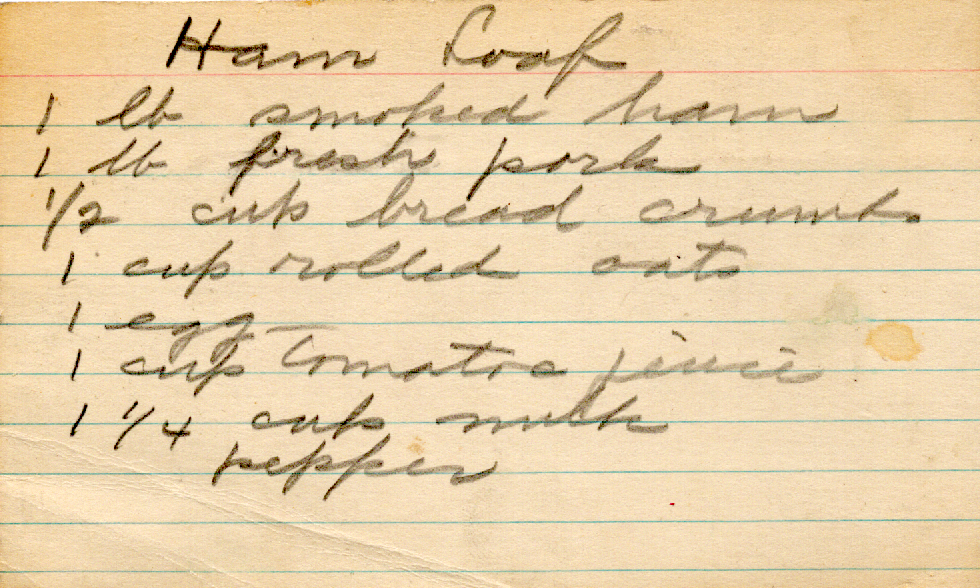 Ham Loaf
1 lb smoked ham
1 lb fresh pork
1/2 cup bread crumbs
1 cup rolled oats
1 egg
1 cup tomatoe juice
1 1/4 cup milk
pepper